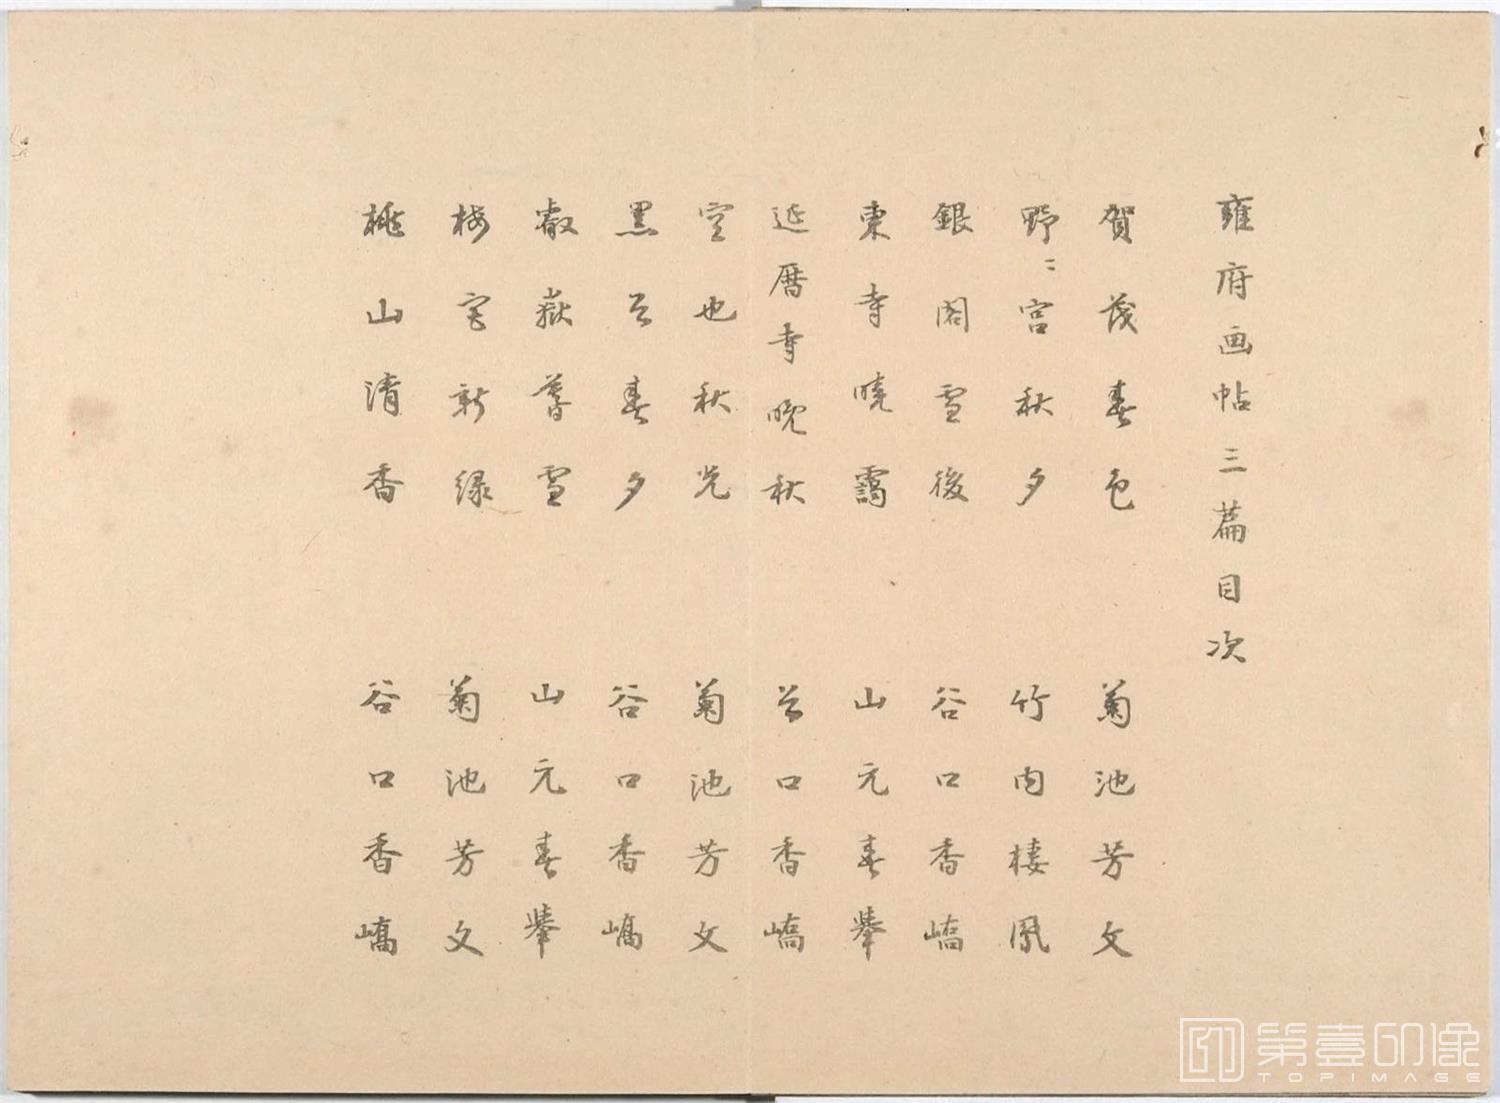 雍府画帖三篇目次
賀茂春色 菊池芳文
野々宮秋夕 竹内棲鳳
銀閣雪後 谷口香嶠
東寺暁靄 山元春挙
延暦寺晩秋 谷口香嶠
空也秋光 菊池芳文
黒谷春夕 谷口香嶠
叡嶽暮雪 山元春挙
梅宮新緑 菊池芳文
桃山清香 谷口香嶠
第壹印像
TOPIMAGE